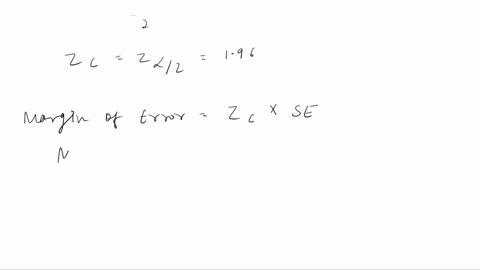 2
Z c = Z α/2 = 1.96
Margin of Error = Z c × SE
M